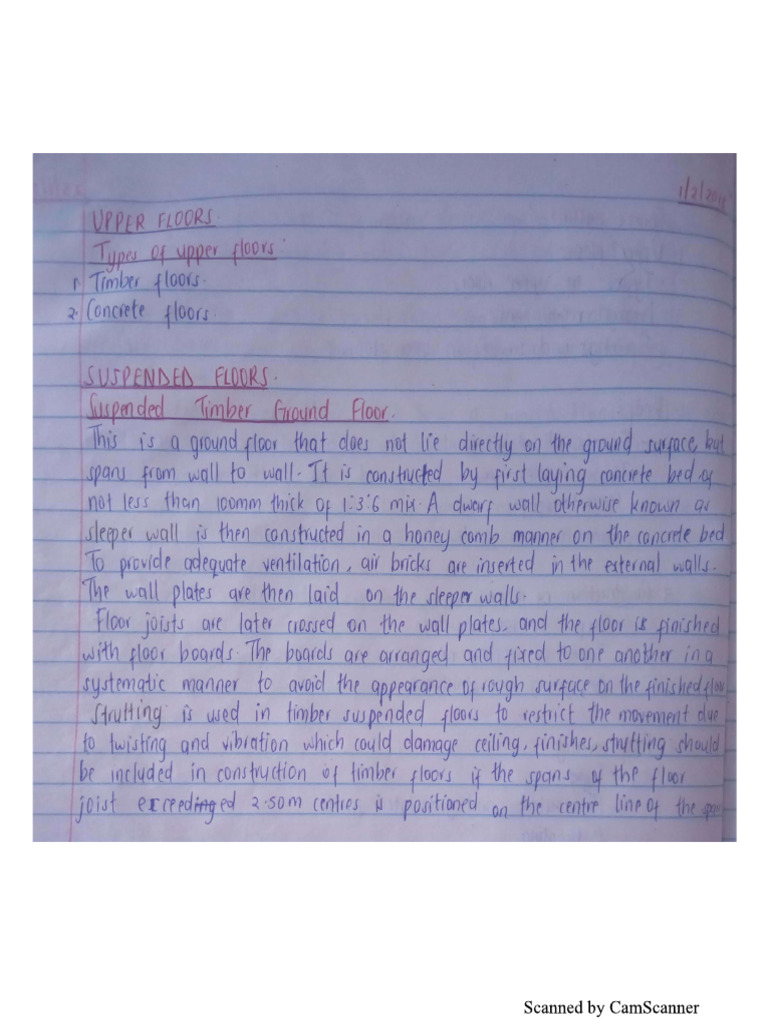 1/2/2011
UPPER FLOORS.
Types of upper floors:
1. Timber floors.
2. Concrete floors.
SUSPENDED FLOORS.
Suspended Timber Ground Floor.
This is a ground floor that does not lie directly on the ground surface, but
spans from wall to wall. It is constructed by first laying concrete bed of
not less than 100mm thick of 1:3:6 mix. A dwarf wall otherwise known as
sleeper wall is then constructed in a honey comb manner on the concrete bed
To provide adequate ventilation, air bricks are inserted in the external walls.
The wall plates are then laid on the sleeper walls.
Floor joists are later crossed on the wall plates, and the floor is finished
with floor boards. The boards are arranged and fixed to one another in a
systematic manner to avoid the appearance of rough surface on the finished floor
Strutting is used in timber suspended floors to restrict the movement due
to twisting and vibration which could damage ceiling, finishes, strutting should
be included in construction of timber floors if the spans of the floor
joist exceeded 2.50m centres is positioned on the centre line of the span
Scanned by CamScanner